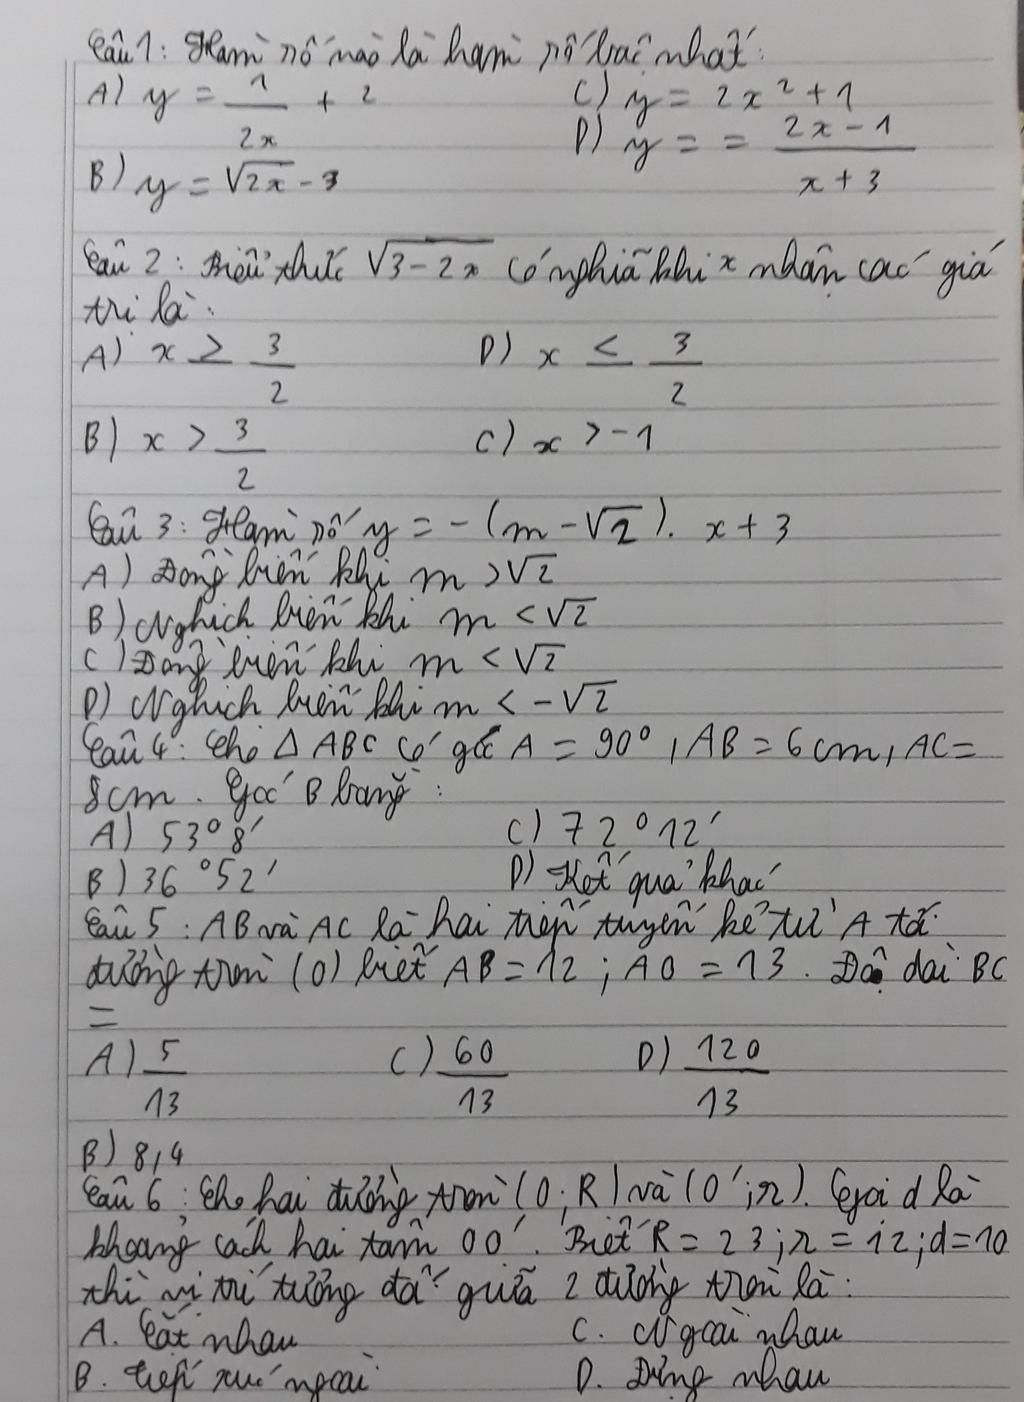 Câu 1: Hàm số nào là hàm số bậc nhất:
A) y = 1/2x + 2 C) y = 2x² + 1
B) y = √2x - 3 D) y = = 2x - 1/x + 3
Câu 2: Biểu thức √3 - 2x có nghĩa khi x nhận các giá
trị là:
A) x ≥ 3/2 D) x ≤ 3/2
B) x > 3/2 C) x > -1
Câu 3: Hàm số y = - (m - √2). x + 3
A) Đồng biến khi m > √2
B) Nghịch biến khi m < √2
C) Đồng biến khi m < √2
D) Nghịch biến khi m < -√2
Câu 4: Cho Δ ABC có góc A = 90°, AB = 6 cm, AC =
8cm. Góc B bằng:
A) 53°8' C) 72°12'
B) 36°52' D) Kết quả khác
Câu 5: AB và AC là hai tiếp tuyến kẻ từ A tới
đường tròn (O) biết AB = 12; AO = 13. Độ dài BC
=
A) 5/13 C) 60/13 D) 120/13
B) 8,4
Câu 6: Cho hai đường tròn (O; R) và (O'; r). Gọi d là
khoảng cách hai tâm OO'. Biết R = 23; r = 12; d = 10
thì vị trí tương đối giữa 2 đường tròn là:
A. Cắt nhau C. Ngoài nhau
B. Tiếp xúc ngoài D. Đựng nhau